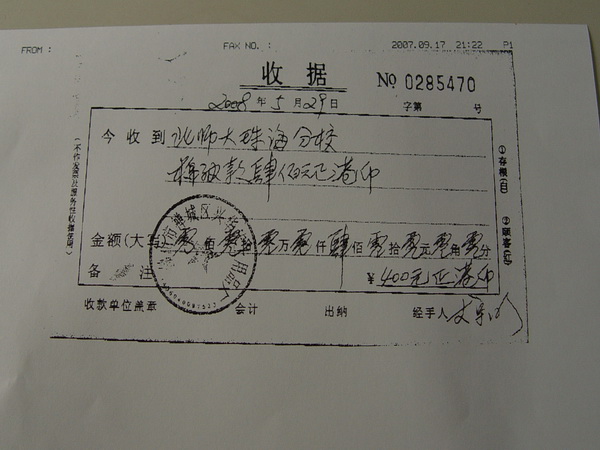 FROM : FAX NO. : 2007.09.17 21:22 P1
收据 № 0285470
2008年5月29日 字第 号
今收到 北师大珠海分校
款肆佰元正
金额(大写)零佰零拾零万零仟肆佰零拾零元零角零分
备 注 ¥400元正
收款单位盖章 会计 出纳 经手人
(不作发票及服务性收据使用)
①存根(白) ②顾客(红)